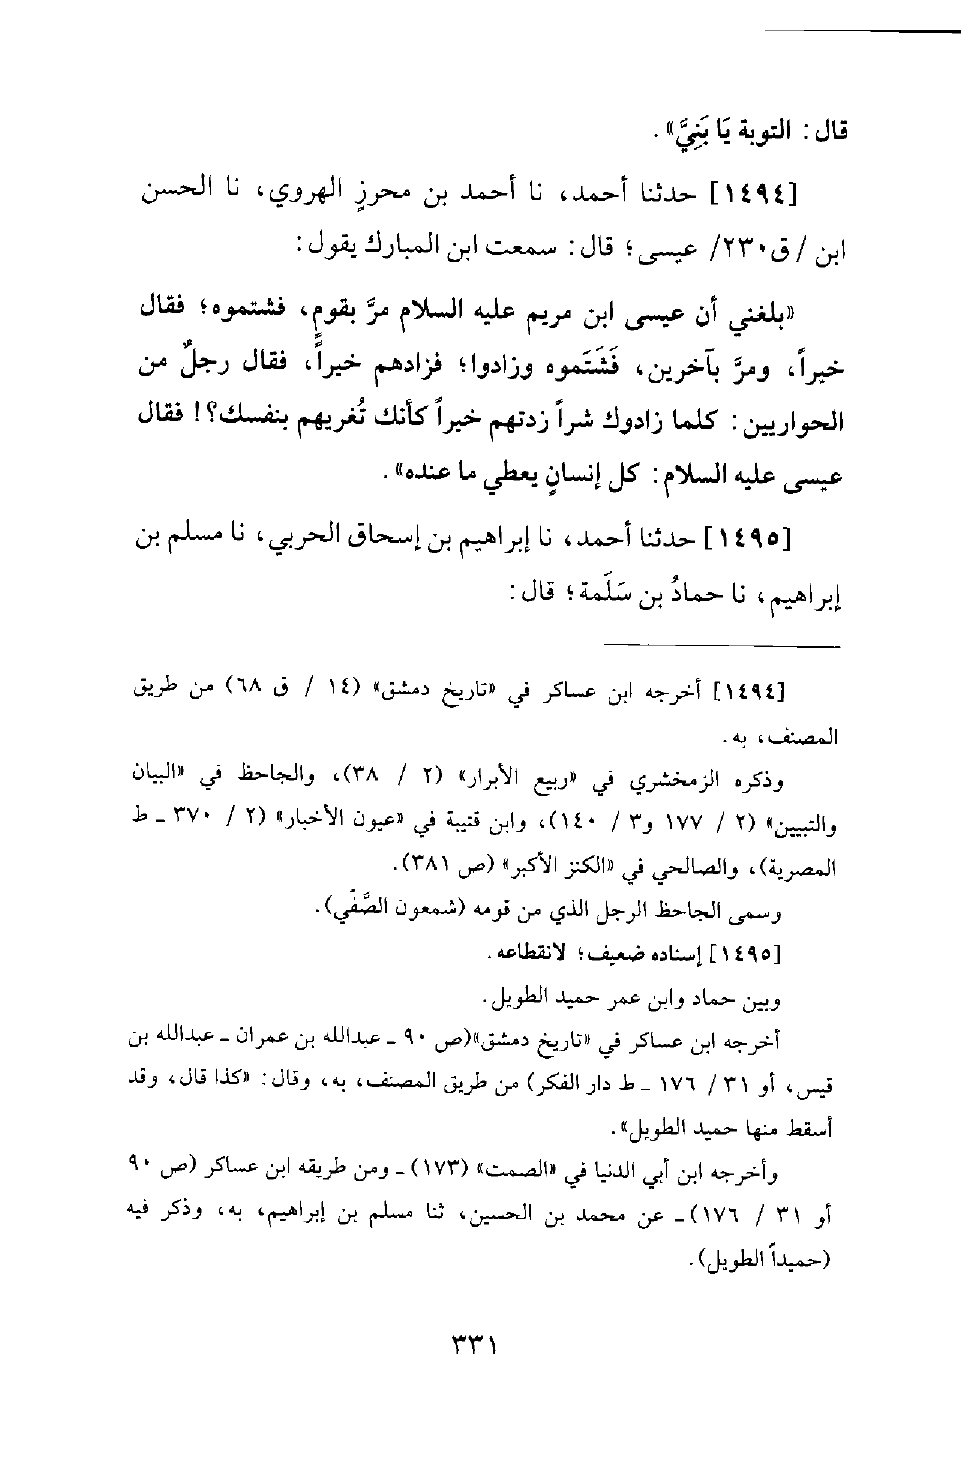 قال: التوبة يَا بَنِيَّ».
[١٤٩٤] حدثنا أحمد، نا أحمد بن محرزٍ الهروي، نا الحسن
ابن /ق٢٣٠/ عيسى؛ قال: سمعت ابن المبارك يقول:
«بلغني أن عيسى ابن مريم عليه السلام مرَّ بقومٍ، فشتموه؛ فقال
خيراً، ومرَّ بآخرين، فَشَتَموه وزادوا؛ فزادهم خيراً، فقال رجلٌ من
الحواريين: كلما زادوك شراً زدتهم خيراً كأنك تُغريهم بنفسك؟! فقال
عيسى عليه السلام: كل إنسانٍ يعطي ما عنده».
[١٤٩٥] حدثنا أحمد، نا إبراهيم بن إسحاق الحربي، نا مسلم بن
إبراهيم، نا حمادُ بن سَلَمة؛ قال:
[١٤٩٤] أخرجه ابن عساكر في «تاريخ دمشق» (١٤ / ق ٦٨) من طريق
المصنف، به.
وذكره الزمخشري في «ربيع الأبرار» (٢ / ٣٨)، والجاحظ في «البيان
والتبيين» (٢ / ١٧٧ و٣ / ١٤٠)، وابن قتيبة في «عيون الأخبار» (٢ / ٣٧٠ ـ ط
المصرية)، والصالحي في «الكنز الأكبر» (ص ٣٨١).
وسمى الجاحظ الرجل الذي من قومه (شمعون الصَّفّي).
[١٤٩٥] إسناده ضعيف؛ لانقطاعه.
وبين حماد وابن عمر حميد الطويل.
أخرجه ابن عساكر في «تاريخ دمشق»(ص ٩٠ ـ عبدالله بن عمران ـ عبدالله بن
قيس، أو ٣١ / ١٧٦ ـ ط دار الفكر) من طريق المصنف، به، وقال: «كذا قال، وقد
أسقط منها حميد الطويل».
وأخرجه ابن أبي الدنيا في «الصمت» (١٧٣) ـ ومن طريقه ابن عساكر (ص ٩٠
أو ٣١ / ١٧٦)ـ عن محمد بن الحسين، ثنا مسلم بن إبراهيم، به، وذكر فيه
(حميداً الطويل).
٣٣١